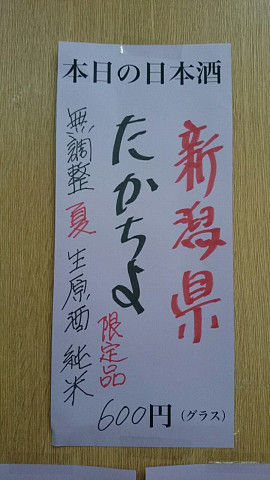 本日の日本酒
新潟県
たかちよ
限定品
無調整 夏 生原酒 純米
600円(グラス)